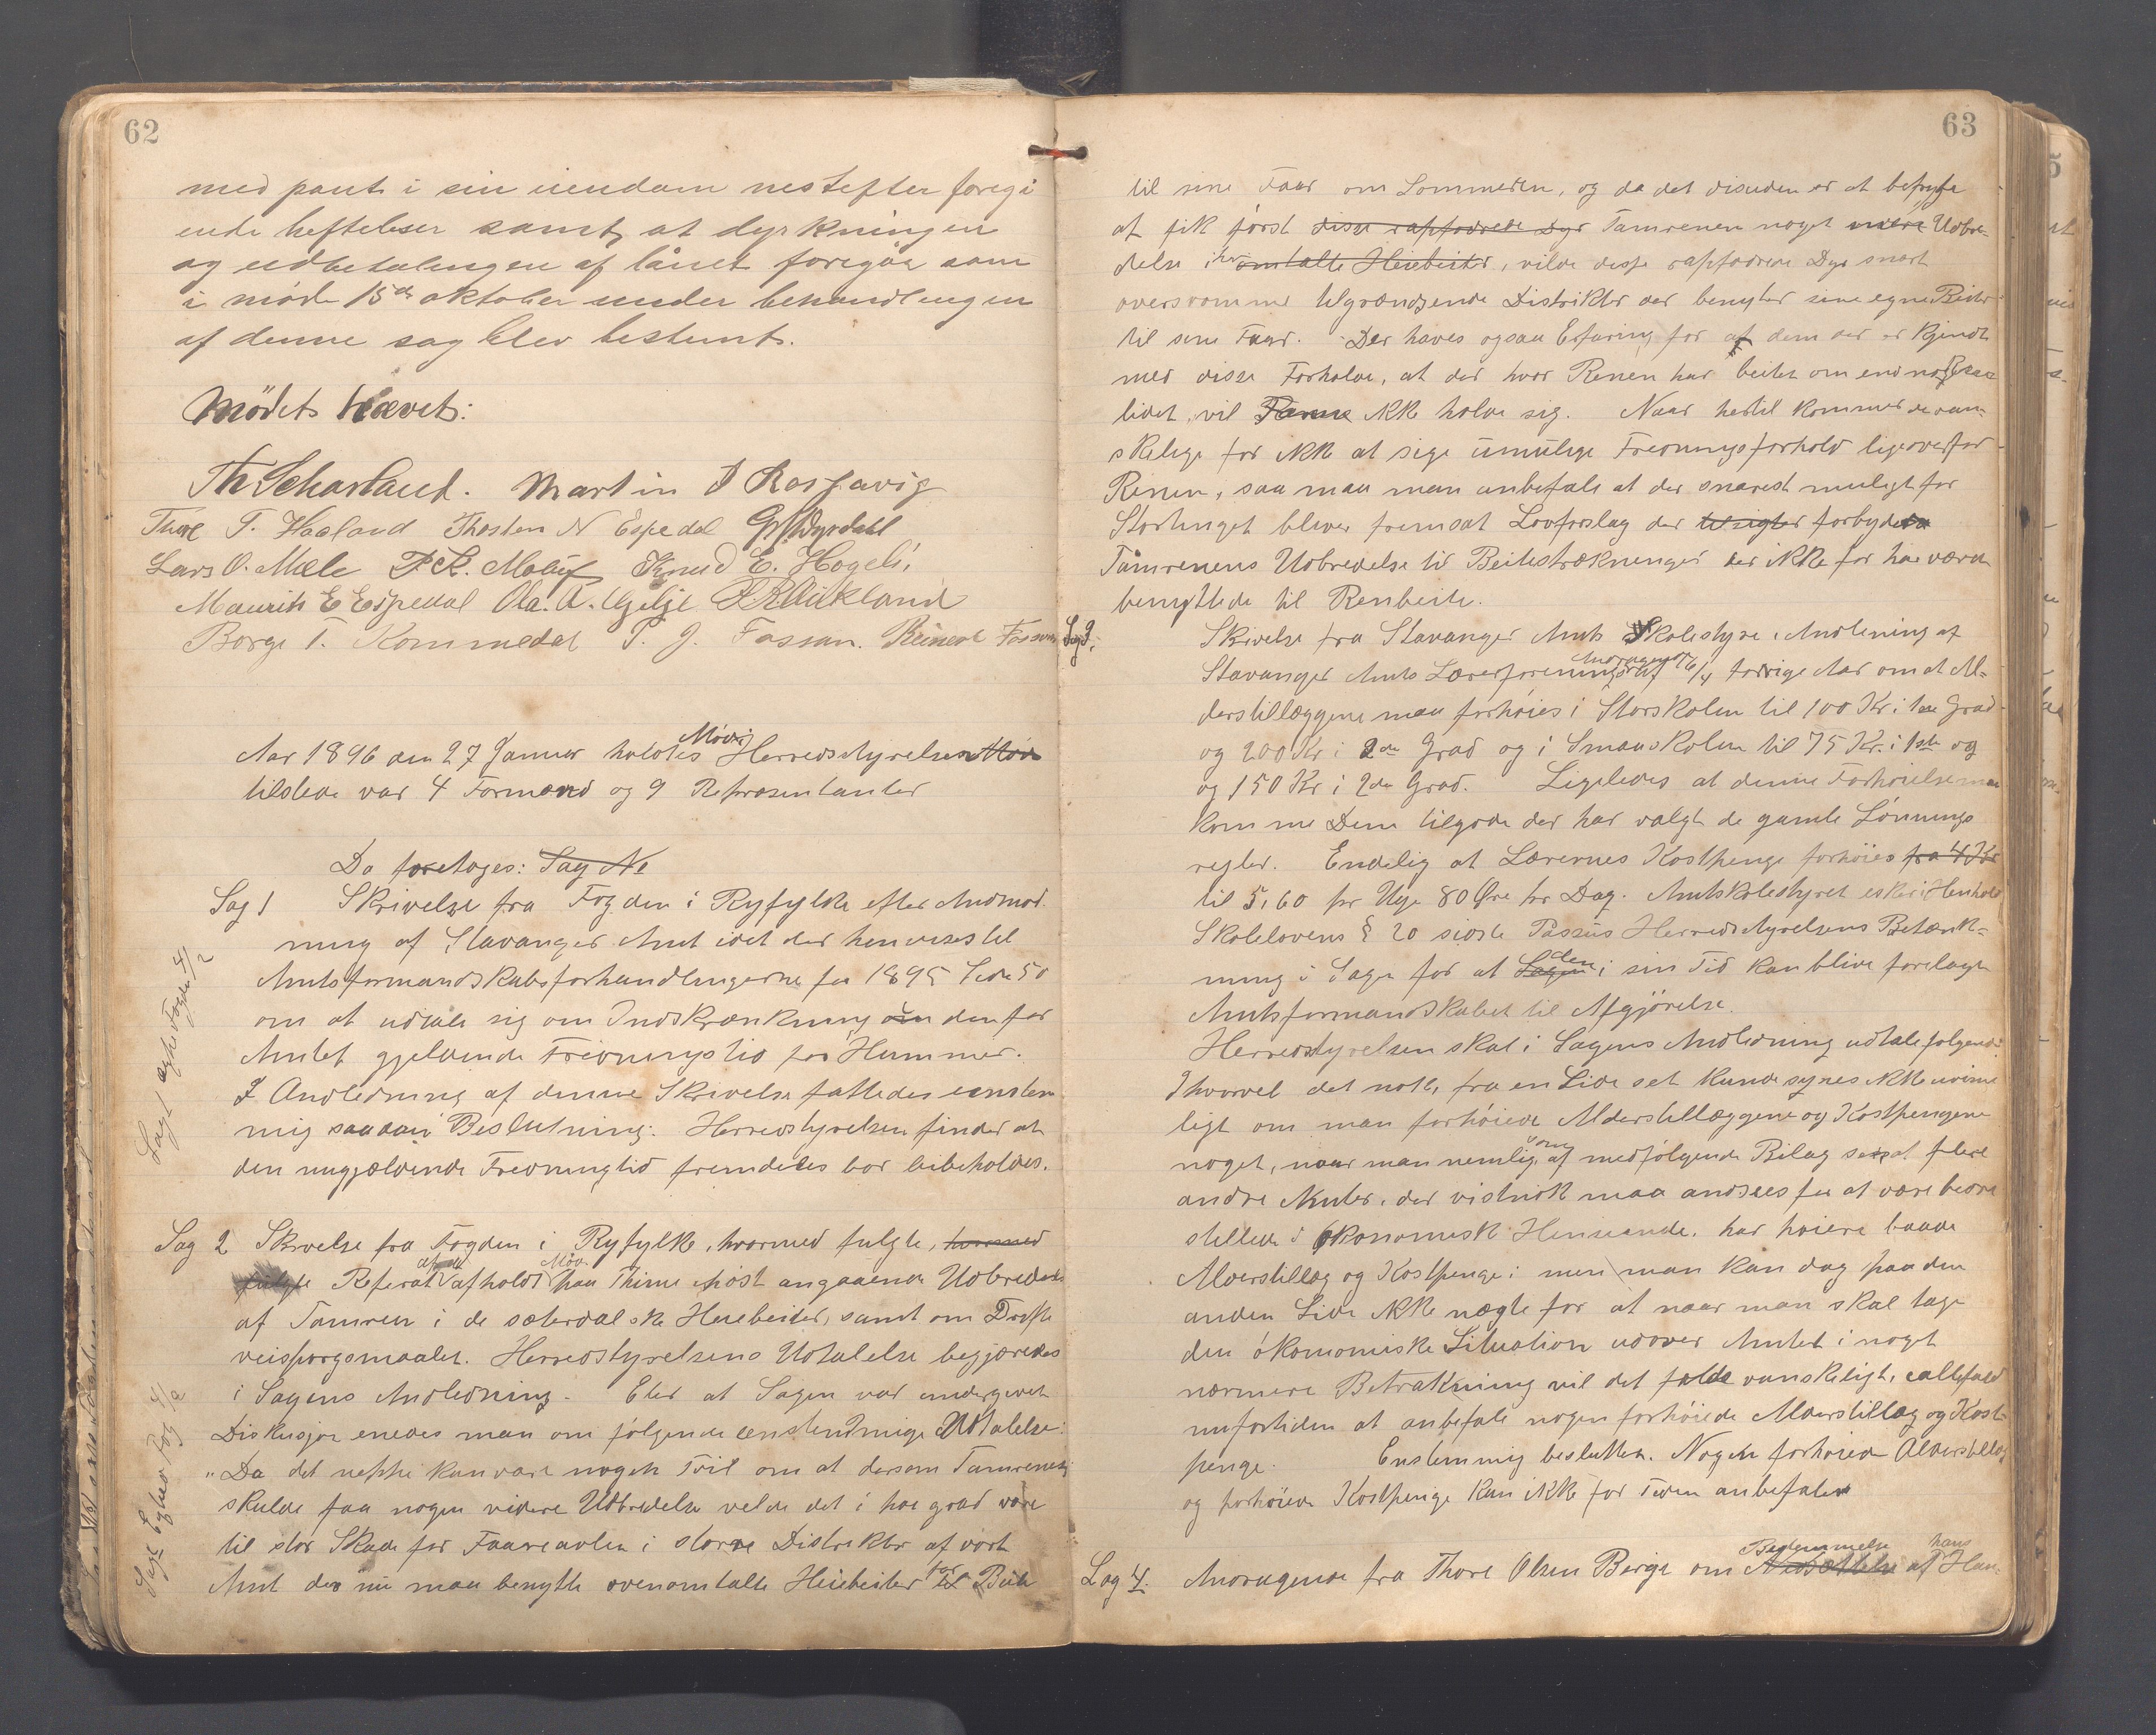 62
med pant i sin eiendom nestefter foregå
ende heftelser samt at dyrkningen
og udbetalingen af lånet foregår som
i möde 15de oktober under behandlingen
af denne sag blev bestemt.
Mödet hævet:
Th Scharland. Martin J Rossavig
Thore T. Haaland Thosten N Espedal
Lars O. Mæle Knud E. Hogeli
Maurits E Espedal Ola. A. Gilje
Borge T. Kommedal T. J. Fossan. Reinert Fossan
Aar 1896 den 27 Januar holdtes Mödre Herredsstyrelsen Möde
tilstede var 4 Formænd og 9 Repræsentanter
Da foretoges: Sag No
Sag 1 Skrivelse fra Fogden i Ryfylke efter Anmod
ning af Stavanger Amt idet der henvises til
Amtsformandskabsforhandlingerne for 1895 Side 50
om at udtale sig om Indskrænkning den for
Amtet gjeldende Fredningstid for Hummer.
I Andledning af denne Skrivelse fattedes enstem
mig saadan Beslutning: Herredstyrelsen finder at
den nugjældende Fredningtid fremdeles bør beibeholdes.
Sag 2 Skrivelse fra Fogden i Ryfylke, hvormed fulgte, hvormed
fulgte Referat af et afholdt Möde paa Thime i höst angaaende Udbredelse
af Tamren i de sæterdalske Heiebeiter, samt om Drifte
veispørgsmaalet. Herredstyrelsens Udtalelse begjæredes
i Sagens Andledning. Efter at Sagen var undergivet
Diskusjon enedes man om fölgende enstemmige Udtalelse:
"Da det neppe kan være nogen Tvil om at dersom Tamrenen
skulde faa nogen videre Udbredelse vilde det i höi grad være
til stor Skade for Faareavlen i större Distrikter af vort
Amt der nu maa benytte ovenomtalte Heiebeiter for Beite
63
til sine Faar om Sommeren, og da det desuden er at befrygte
at fik först disse rapfodrede Dyr Tamrenen noget mere Udbre-
delse i her omtalte Heiebeiter, vilde disse rapfodrede Dyr snart
oversvømme tilgrændsende Distrikter der benytter sine egne Beiter
til sine Faar. Der haves ogsaa Erfaring for af dem der er kjendt
med disse Forholde, at der hvor Renen har beitet om end nogsaa
lidet, vil Faarene ikke holde sig. Naar hertil kommer de van-
skelige for ikke at sige umulige Fredningsforhold ligeoverfor
Renen, saa maa man anbefale at der snarest muligt for
Stortinget bliver fremsat Lovforslag der tilsigter forbydes
Tamrenens Udbredelse til Beitestrækninger der ikke før har været
benyttede til Renbeite.
Sag 3. Skrivelse fra Stavanger Amts Skolestyre i Andledning af
Stavanger Amts Lærerforenings Andragende af 16/4 forrige Aar om at Al-
derstillæggene maa forhöies i Storskolen til 100 Kr i 1ste Grad
og 200 Kr i 2den Grad og i Smaaskolen til 75 Kr. i 1ste og
og 150 Kr i 2den Grad. Ligeledes at denne Forhöielse maa
komme Dem tilgode der har valgt de gamle Lönnings
regler. Endelig at Lærernes Kostpenge forhöies fra 4 Kr
til 5,60 pr Uge 80 Øre pr Dag. Amtskolestyret esker i Henhold
Skolelovens § 20 sidste Passus Herredsstyrelsens Betænk-
ning i Sagen for at Sagen den i sin Tid kan blive forelagt
Amtsformandskabet til Afgjörelse.
Herredstyrelsen skal i Sagens Andledning udtale fölgende:
Ihvorvel det nok, fra en Side set kunde synes ikke urime
ligt om man forhöiede Alderstillæggene og Kostpengene
noget, naar man nemlig som af medfölgende Bilag sees at flere
andre Amter, der vistnok maa andsees for at være bedre
stillede i ökonomisk Henseende, har høiere baade
Alderstillæg og Kostpenge; men man kan dog paa den
anden Side ikke nægte for at naar man skal tage
den ökonomiske Situation udover Amtet i noget
nærmere Betraktning vil det falde vanskeligt, i allefald
nufortiden at anbefale nogen forhöiede Alderstillæg og Kost-
penge. Enstemmig besluttet. Nogen forhöiede Alderstillæg
og forhöiede Kostpenge kan ikke for Tiden anbefales
Sag 4. Andragende fra Thore Olsen Berge om Bedömmelse Nedsættelse af hans Han-